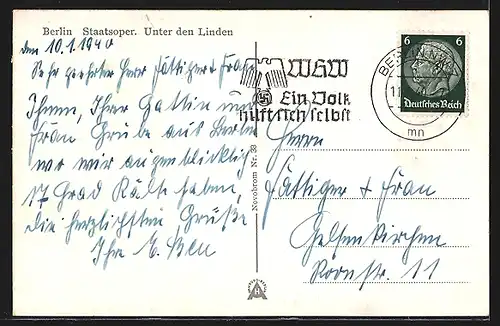 Berlin Staatsoper. Unter den Linden
den 10.1.1940
Sehr geehrter Herr Füttiger & Frau
Ihnen, Ihrer Gattin und
Frau Grube aus Berlin
wo wir augenblicklich
17 Grad Kälte haben,
die herzlichsten Grüße
Ihre E.
Novobrom Nr. 38
WHW
Ein Volk
hilft sich selbst
BERLIN
mn
6 6
Deutsches Reich
Herrn
Füttiger & Frau
Gelsenkirchen
Roonstr. 11